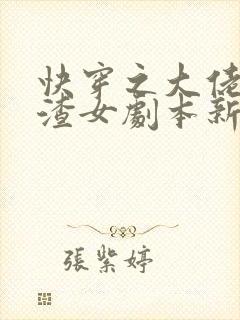 快穿之大佬
渣女劇本新
張紫婷